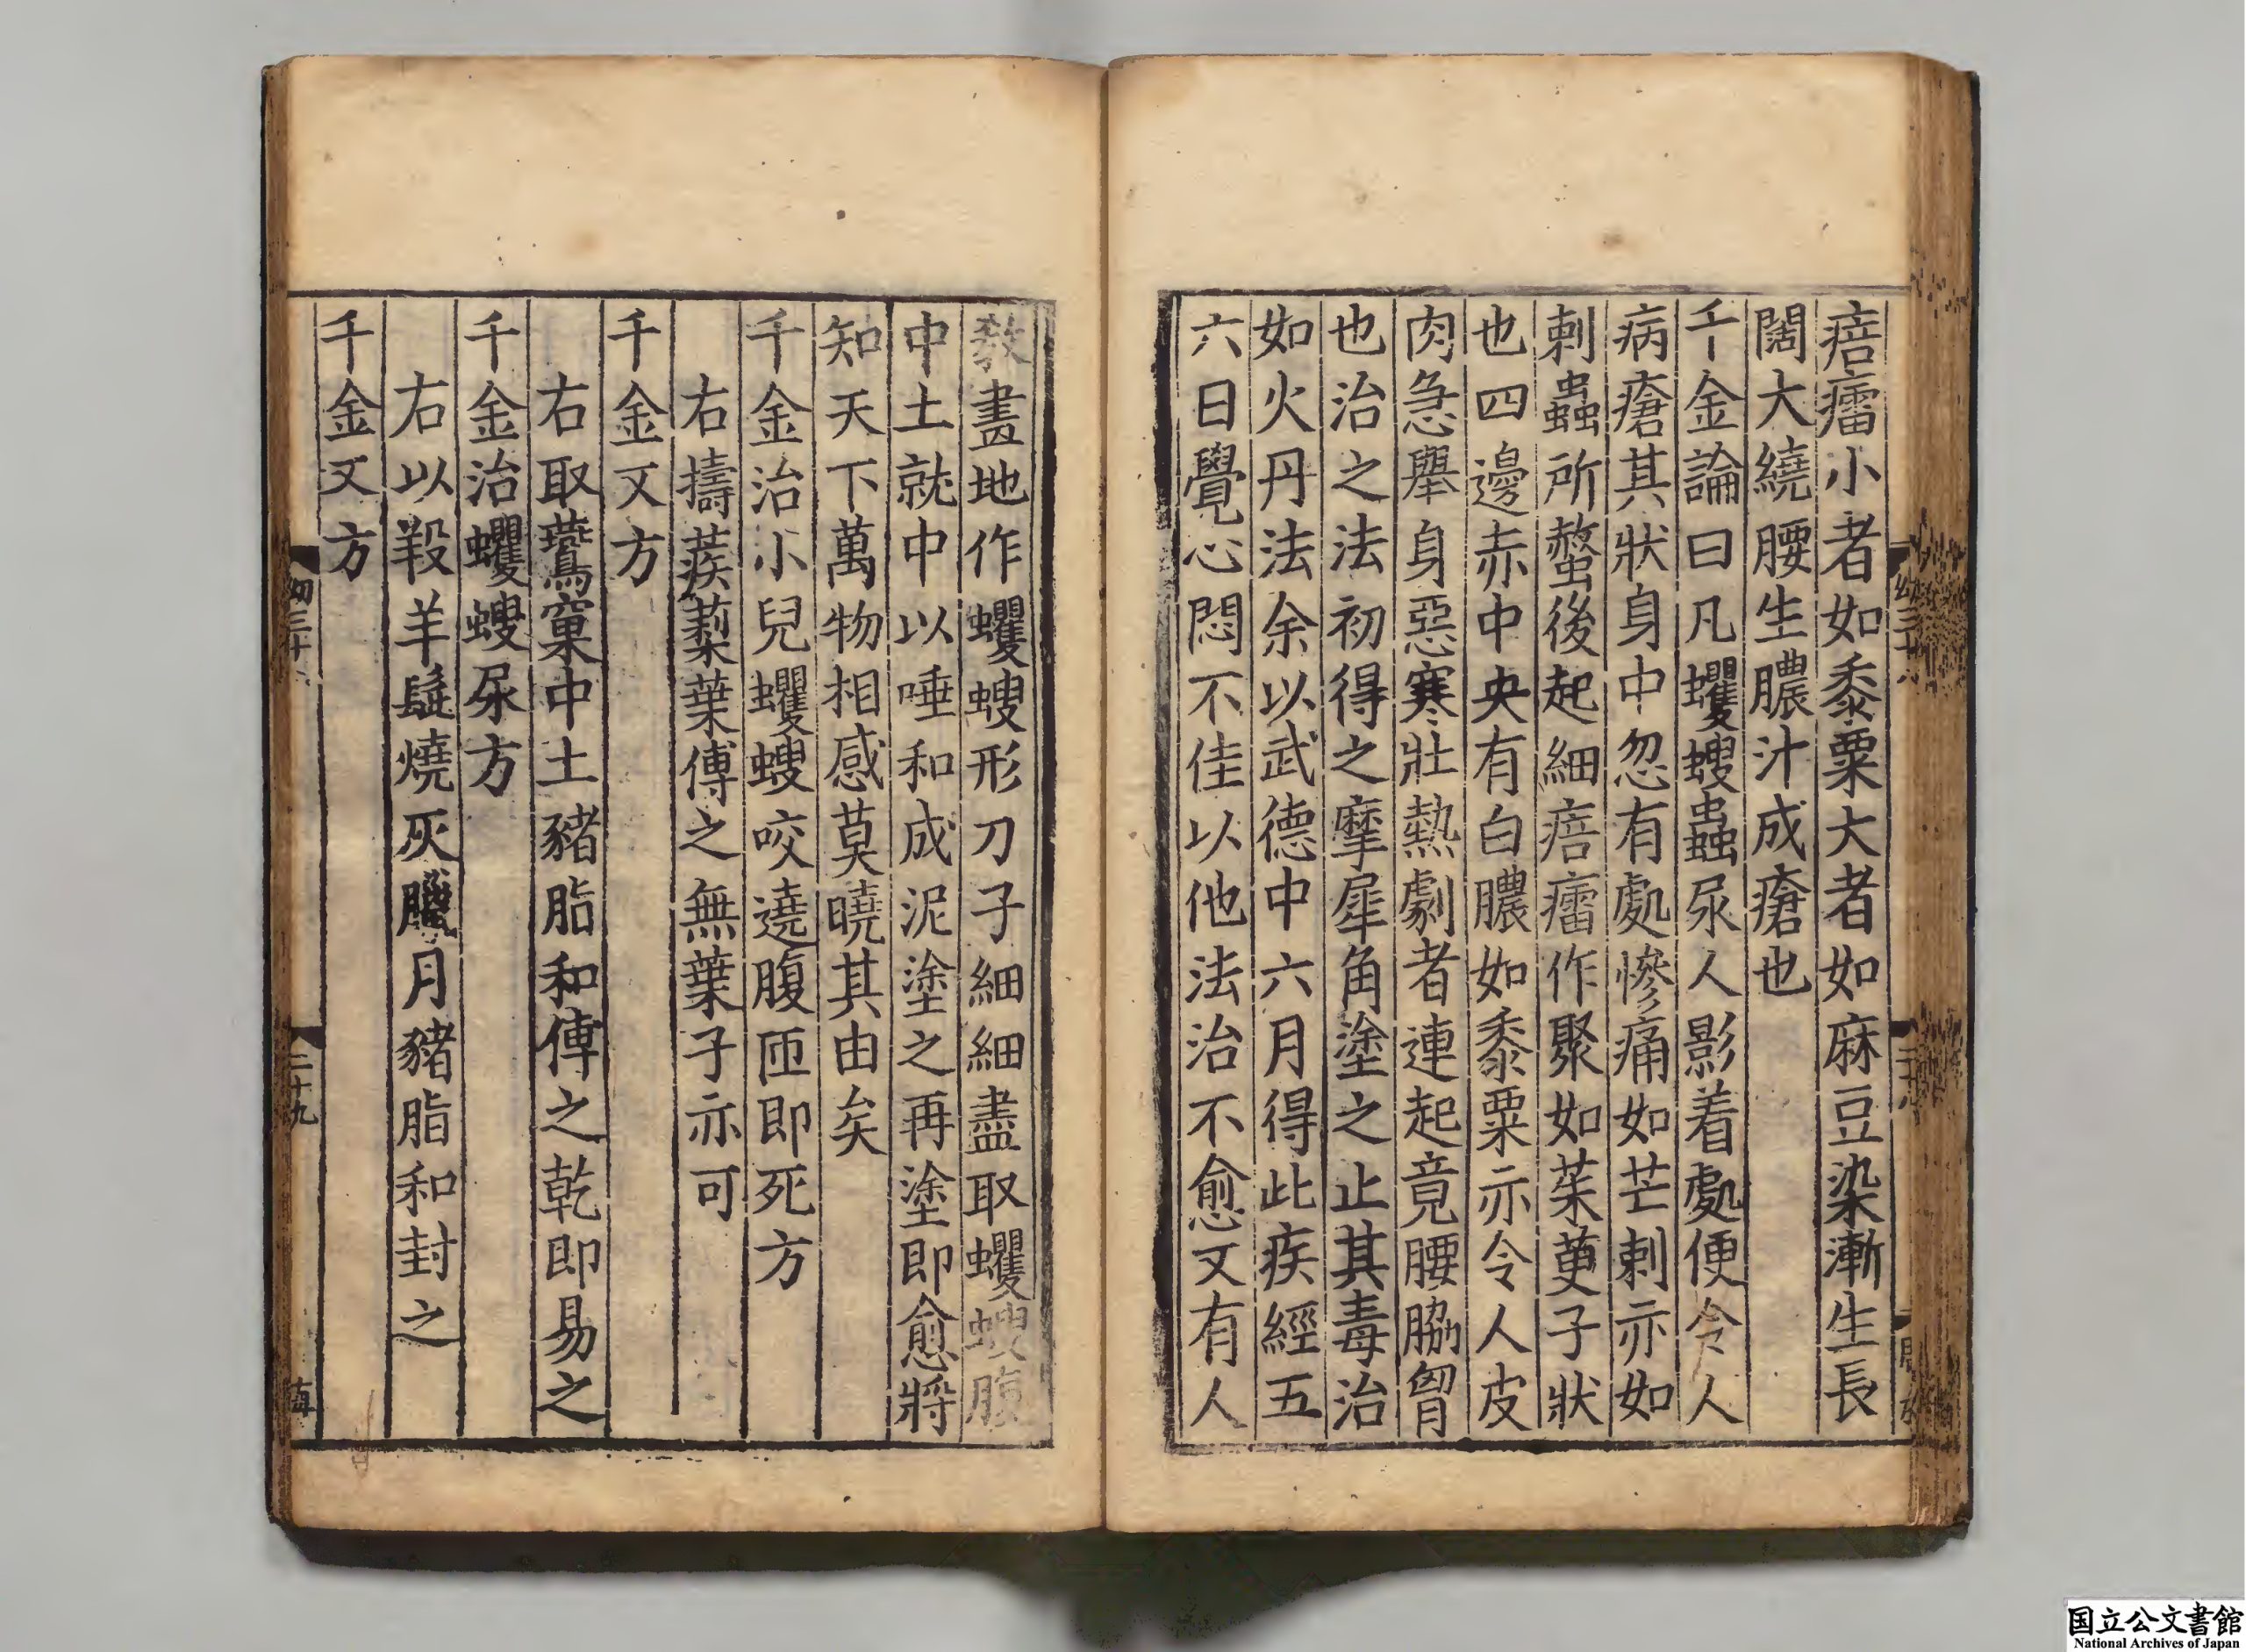 㾦㿔小者如黍粟大者如麻豆染漸生長
闊大繞腰生膿汁成瘡也
千金論曰凡蠼螋蟲尿人影着處便令人
病瘡其狀身中忽有處慘痛如芒刺亦如
刺蟲所螫後起細㾦㿔作聚如茱萸子狀
也四邊赤中央有白膿如黍粟亦令人皮
肉急舉身惡寒壯熱劇者連起竟腰脇胷
也治之法初得之摩犀角塗之止其毒治
如火丹法余以武德中六月得此疾經五
六日覺心悶不佳以他法治不愈又有人
教畫地作蠼螋形刀子細細盡取蠼螋腹
中土就中以唾和成泥塗之再塗即愈將
知天下萬物相感莫曉其由矣
千金治小兒蠼螋咬遶腹匝即死方
右擣蒺蔾葉傅之無葉子亦可
千金又方
右取鷰窠中土豬脂和傅之乾即易之
千金治蠼螋尿方
右以羖羊髭燒灰臘月豬脂和封之
千金又方
二十九
国立公文書館
National Archives of Japan